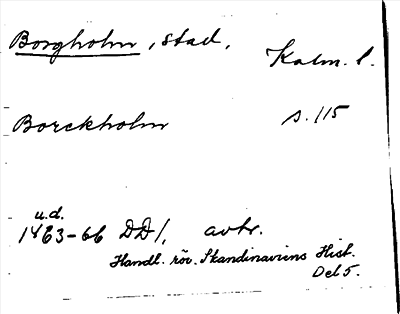 Borgholm, stad,
Kalm. l.
Borckholm
s. 115
u.d.
1463-66 DD1, avtr.
Handl. rör. Skandinaviens Hist.
Del 5.